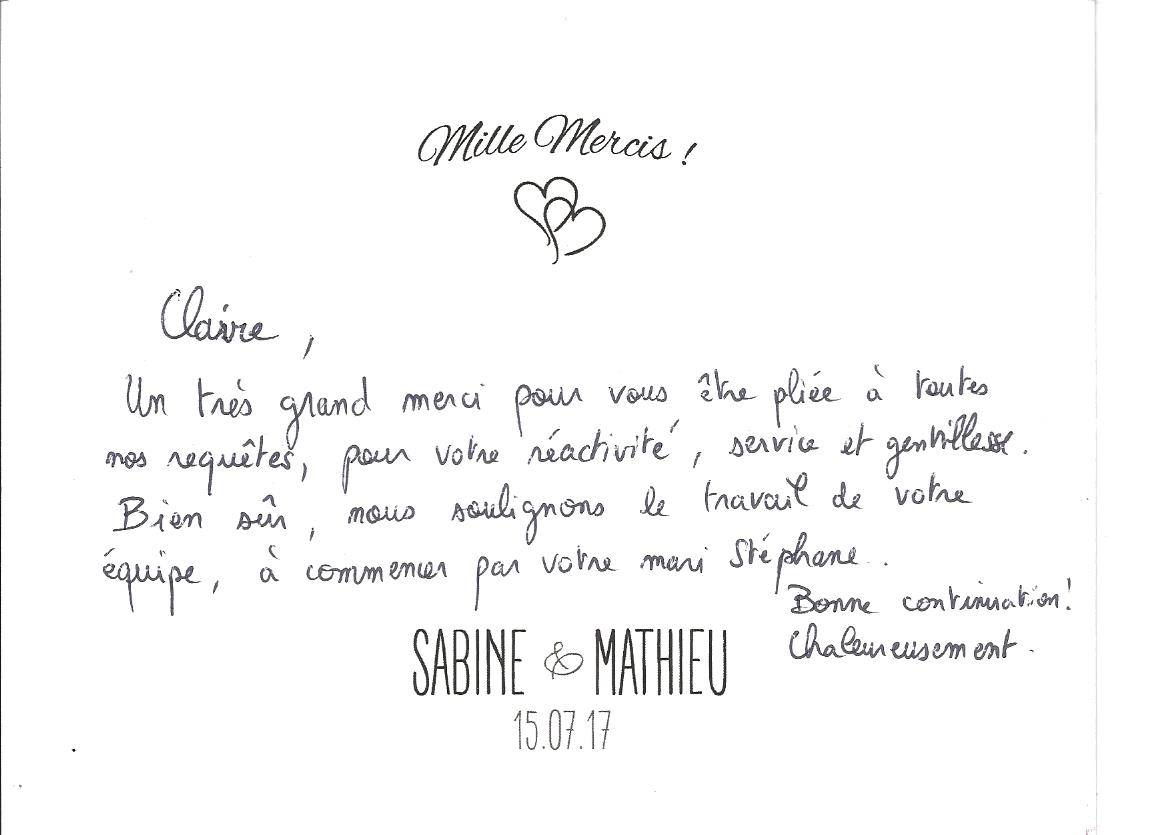 Mille Mercis !
Claire,
Un très grand merci pour vous être pliée à toutes
nos requêtes, pour votre réactivité, service et gentillesse.
Bien sûr, nous soulignons le travail de votre
équipe, à commencer par votre mari Stéphane.
Bonne continuation!
Chaleureusement.
SABINE & MATHIEU
15.07.17